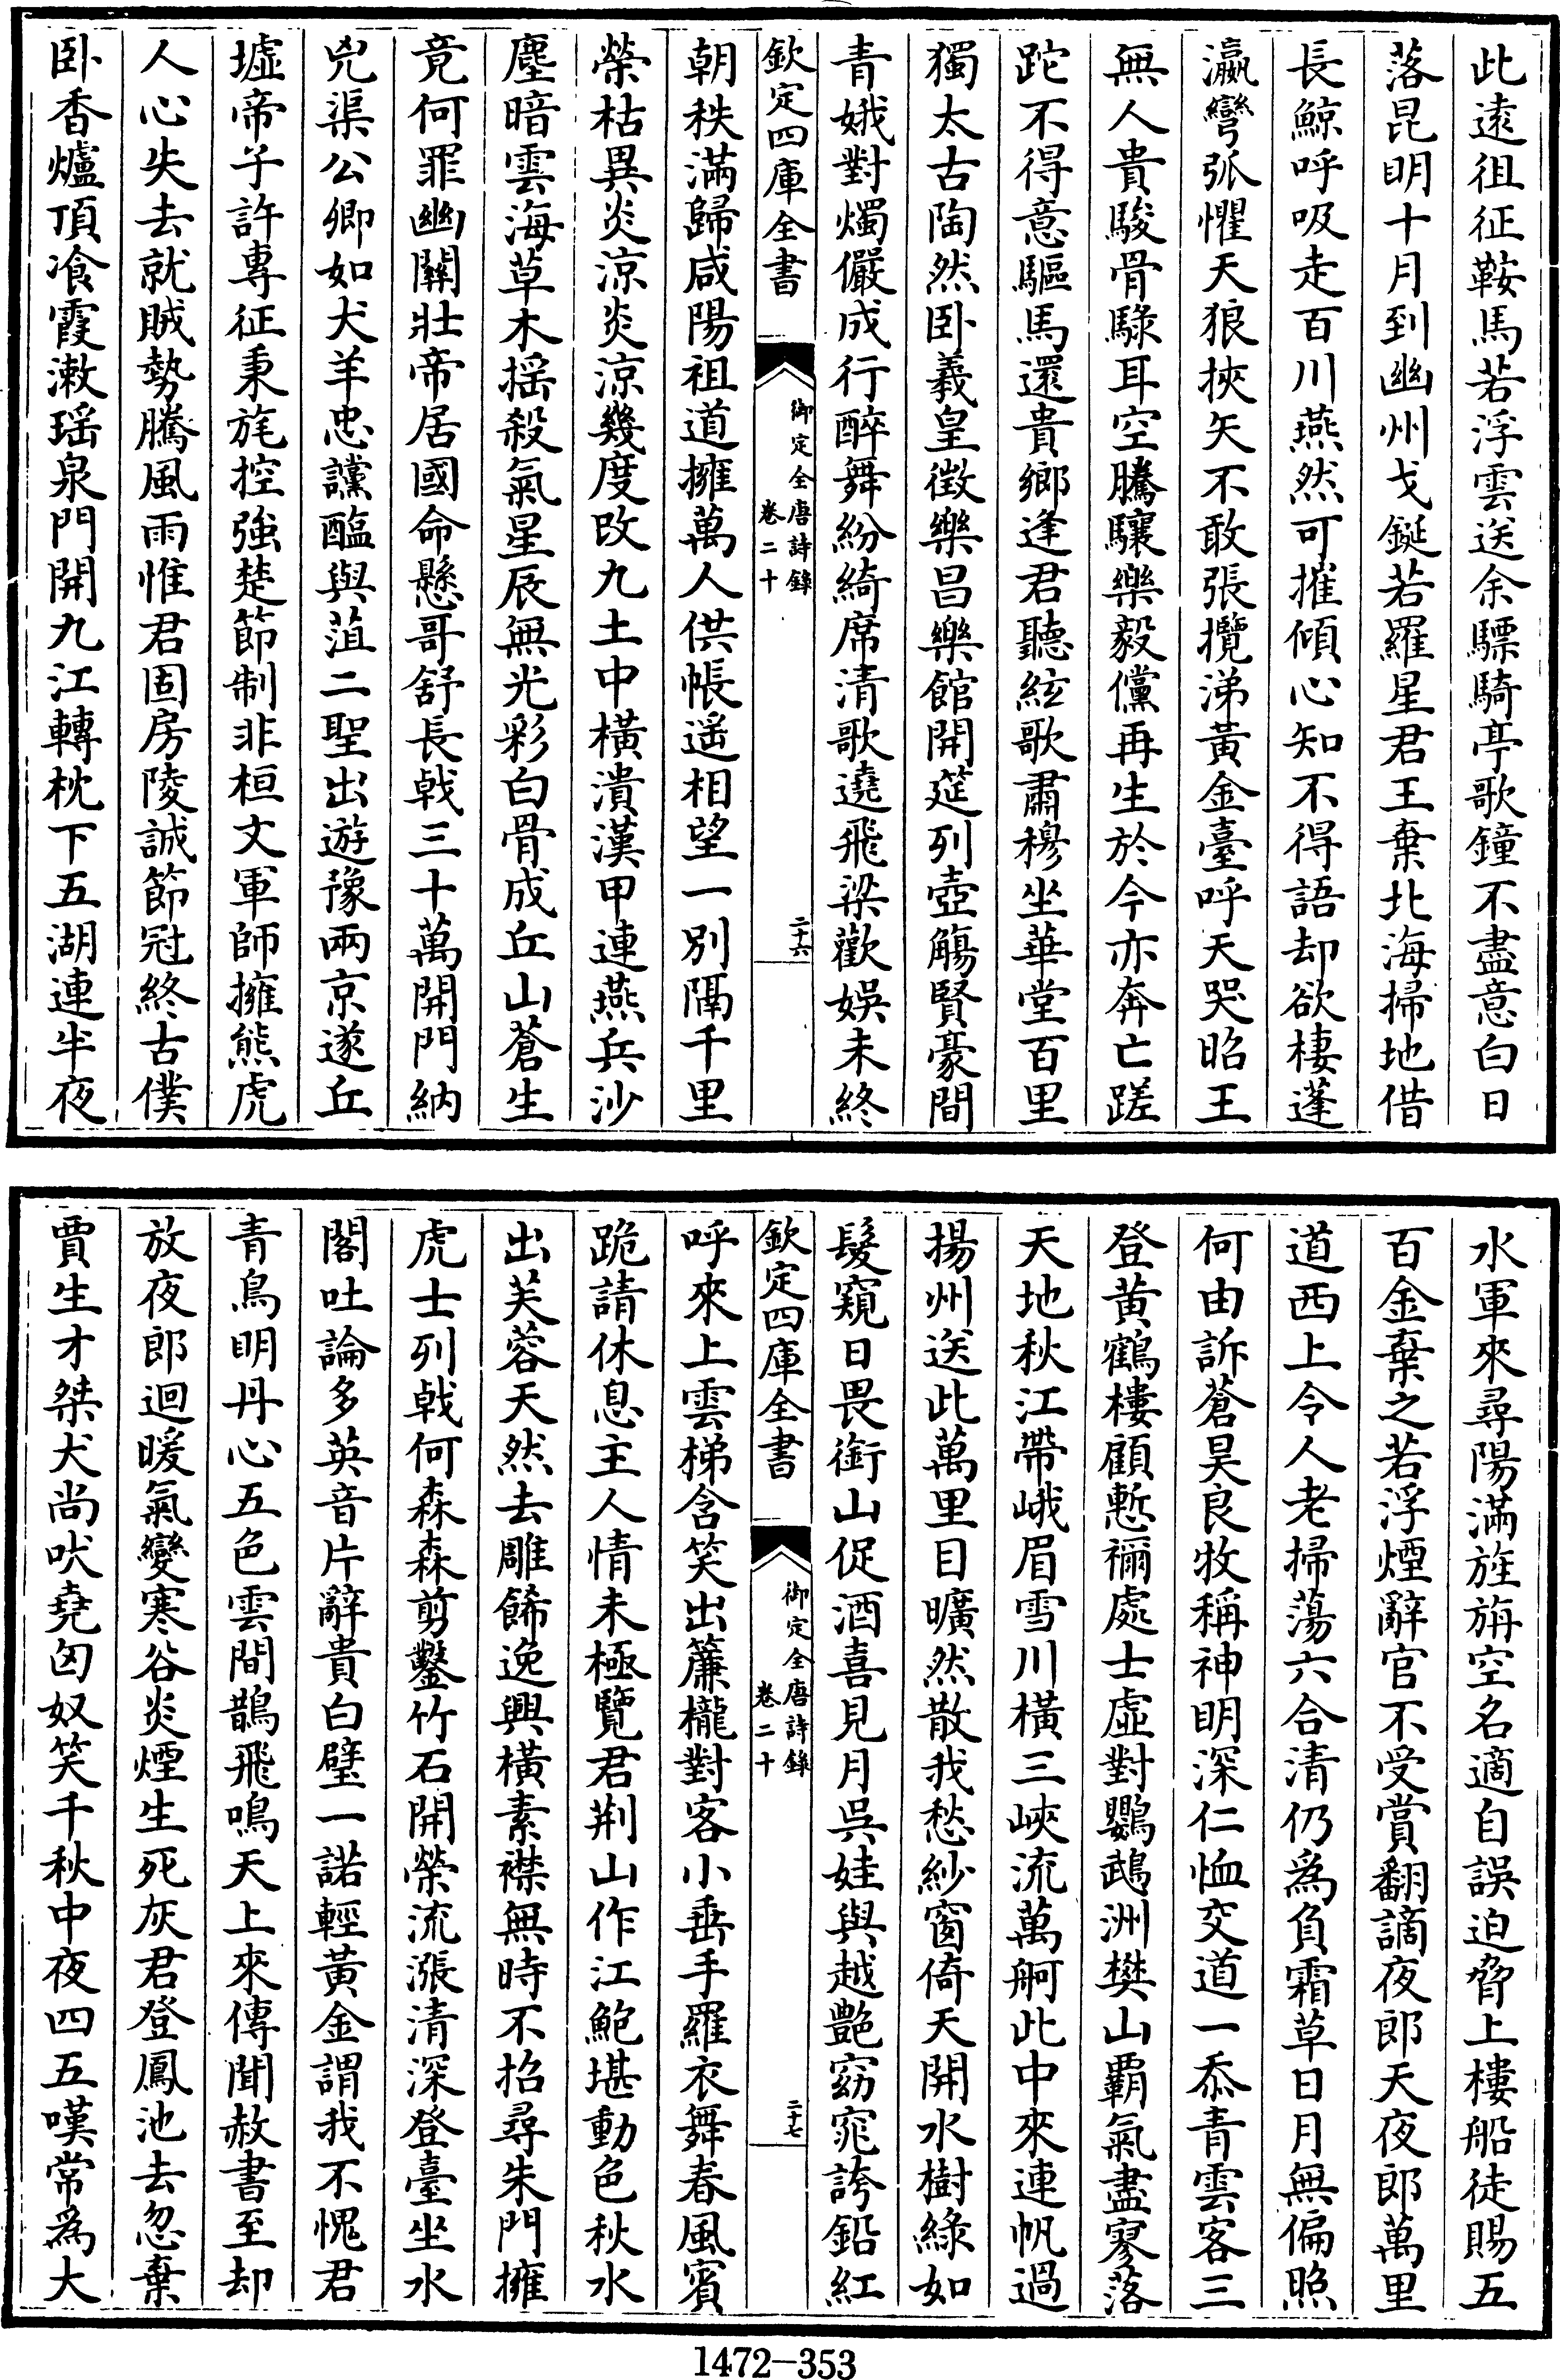 此遠徂征鞍馬若浮雲送余驃騎亭歌鐘不盡意白日
落昆明十月到幽州戈鋋若羅星君王棄北海掃地借
長鯨呼吸走百川燕然可摧傾心知不得語却欲棲蓬
瀛彎弧懼天狼挾矢不敢張攬涕黃金臺呼天哭昭王
無人貴駿骨騄耳空騰驤樂毅儻再生於今亦奔亡蹉
跎不得意驅馬還貴鄉逢君聽絃歌肅穆坐華堂百里
獨太古陶然卧羲皇徴樂昌樂館開筵列壺觴賢豪間
青娥對燭儼成行醉舞紛綺席清歌遶飛梁歡娛未終
欽定四庫全書
御定全唐詩錄
卷二十
二十六
朝秩滿歸咸陽祖道擁萬人供帳遥相望一別隔千里
榮枯異炎涼炎涼幾度改九土中橫潰漢甲連燕兵沙
塵暗雲海草木揺殺氣星辰無光彩白骨成丘山蒼生
竟何罪幽關壯帝居國命懸哥舒長戟三十萬開門納
兇渠公卿如犬羊忠讜醢與菹二聖出遊豫兩京遂丘
墟帝子許專征秉旄控強楚節制非桓文軍師擁熊虎
人心失去就賊勢騰風雨惟君固房陵誠節冠終古僕
卧香爐頂飡霞漱瑶泉門開九江轉枕下五湖連半夜
水軍來尋陽滿旌旃空名適自誤迫脅上樓船徒賜五
百金棄之若浮煙辭官不受賞翻謫夜郎天夜郎萬里
道西上令人老掃蕩六合清仍爲負霜草日月無偏照
何由訴蒼昊良牧稱神明深仁恤交道一忝青雲客三
登黃鶴樓顧慙禰處士虛對鸚鵡洲樊山霸氣盡寥落
天地秋江帶峨眉雪川橫三峽流萬舸此中來連帆過
揚州送此萬里目曠然散我愁紗窗倚天開水樹綠如
髮窺日畏銜山促酒喜見月吳娃與越艷窈窕誇鉛紅
欽定四庫全書
御定全唐詩錄
卷二十
二十七
呼來上雲梯含笑出簾櫳對客小垂手羅衣舞春風賓
跪請休息主人情未極覽君荆山作江鮑堪動色秋水
出芙蓉天然去雕飾逸興橫素襟無時不招尋朱門擁
虎士列戟何森森剪鑿竹石開縈流漲清深登臺坐水
閣吐論多英音片辭貴白璧一諾輕黃金謂我不愧君
青鳥明丹心五色雲間鵲飛鳴天上來傳聞赦書至却
放夜郎迴暖氣變寒谷炎煙生死灰君登鳳池去忽棄
賈生才桀犬尚吠堯匈奴笑千秋中夜四五嘆常爲大
1472-353